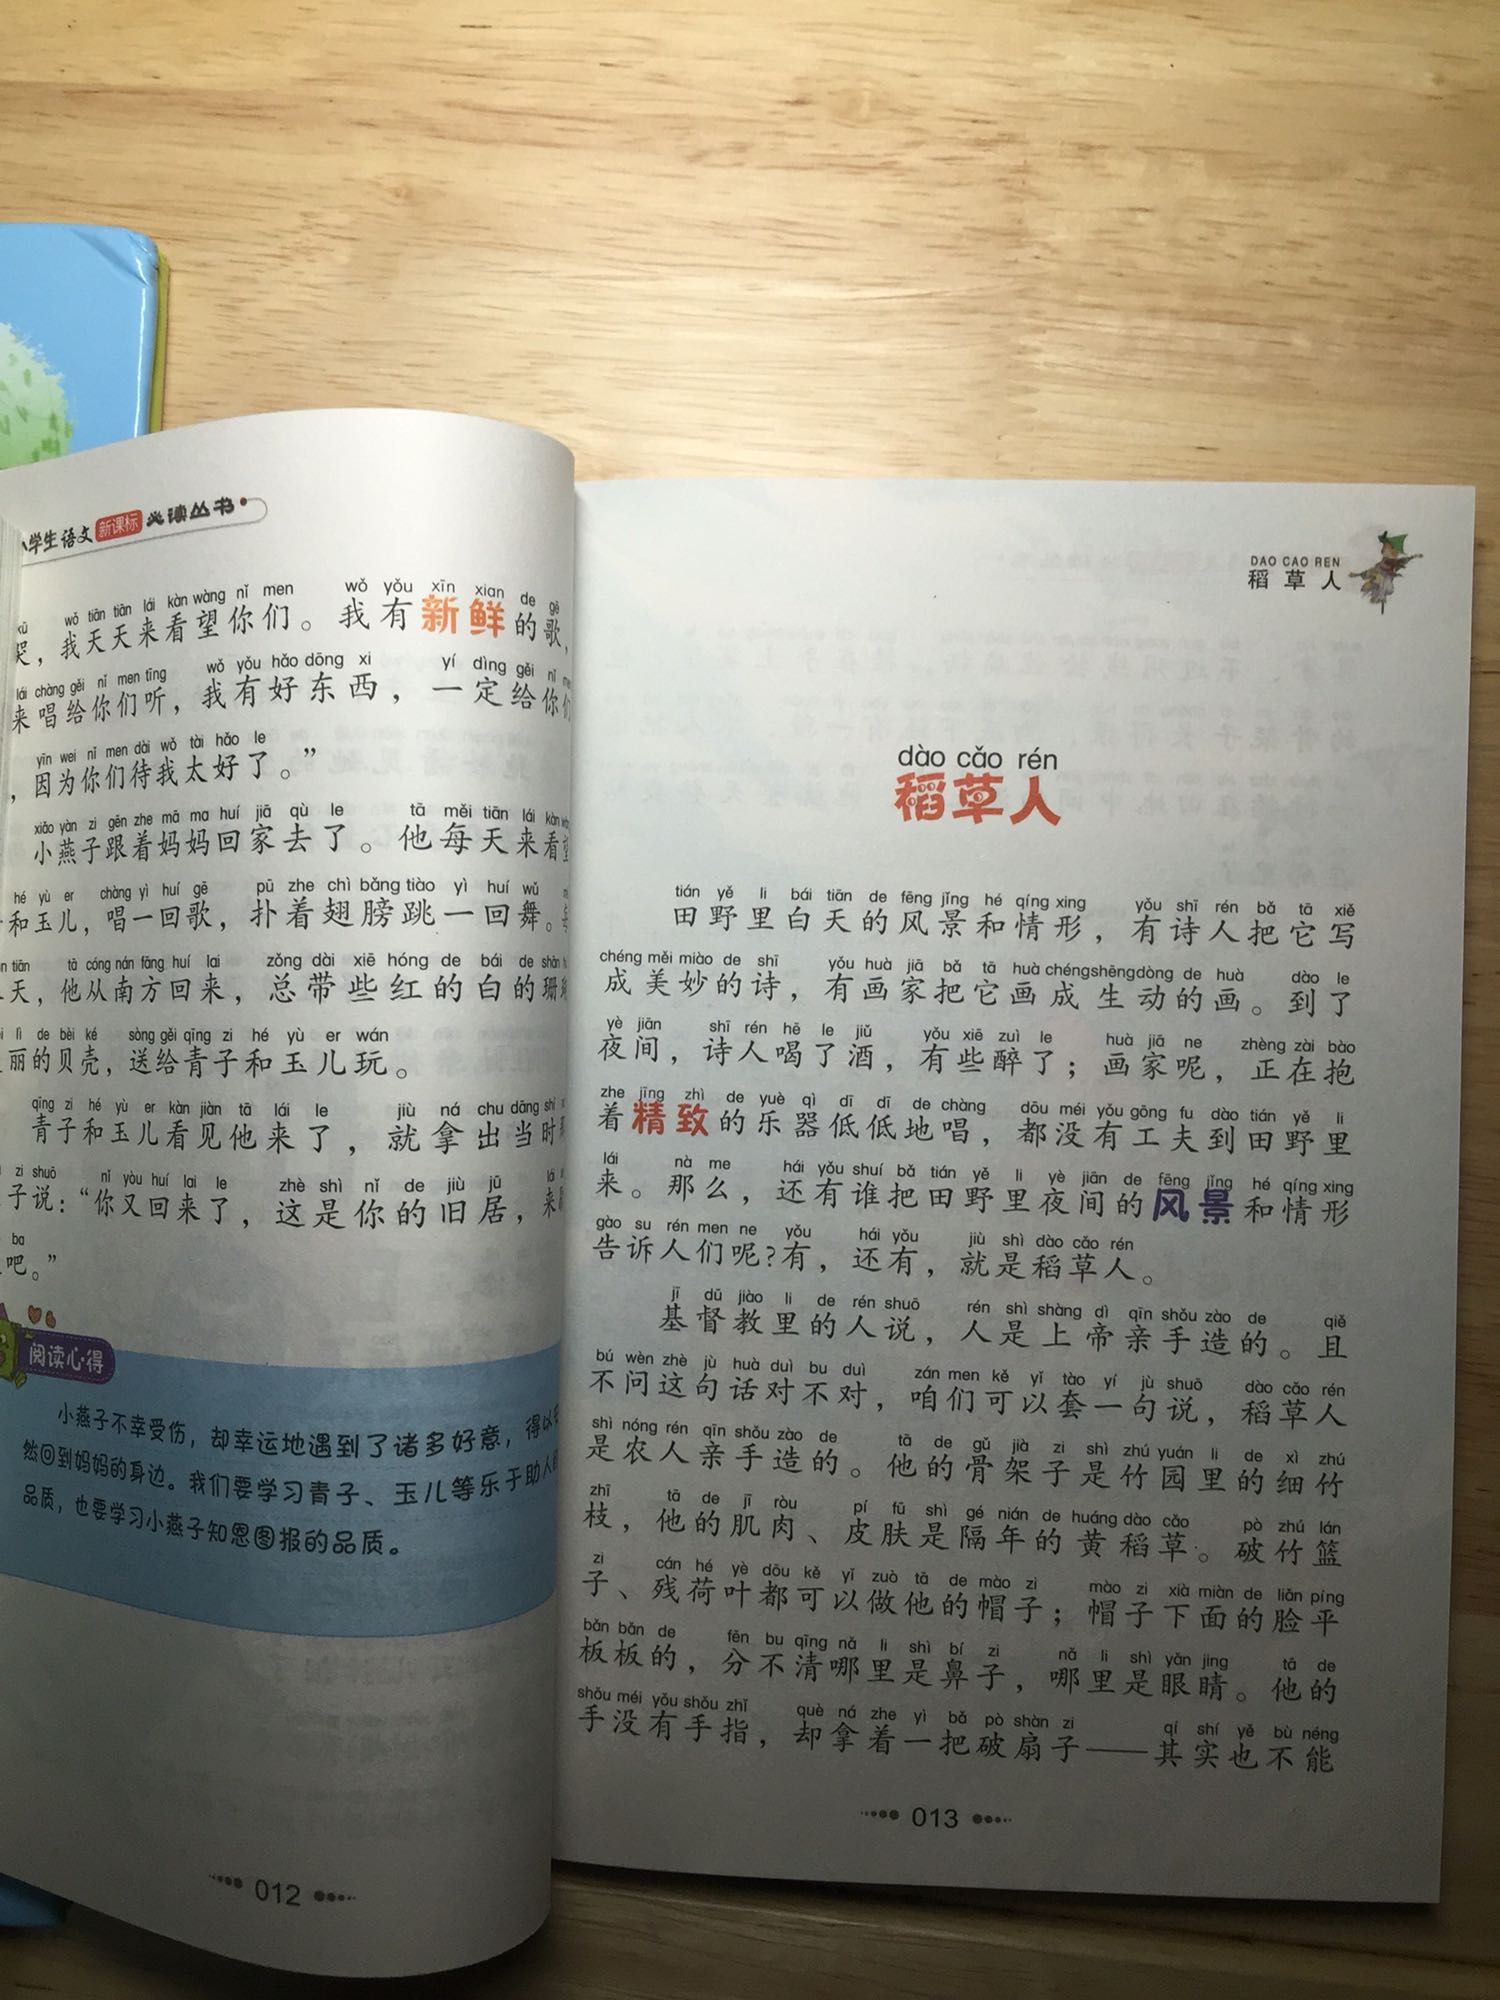 学生语文 新课标 必读丛书
wǒ tiān tiān lái kàn wàng nǐ men wǒ yǒu xīn xian de gē
哭，我天天来看望你们。我有新鲜的歌，
lái chàng gěi nǐ men tīng wǒ yǒu hǎo dōng xi yí dìng gěi nǐ
来唱给你们听，我有好东西，一定给你们
yīn wei nǐ men dài wǒ tài hǎo le
，因为你们待我太好了。”
xiǎo yàn zi gēn zhe mā ma huí jiā qù le tā měi tiān lái kàn
小燕子跟着妈妈回家去了。他每天来看望
hé yù er chàng yì huí gē pū zhe chì bǎng tiào yì huí wǔ
和玉儿，唱一回歌，扑着翅膀跳一回舞。每
tiān tā cóng nán fāng huí lai zǒng dài xiē hóng de bái de shān
天，他从南方回来，总带些红的白的珊
lì de bèi ké sòng gěi qīng zi hé yù er wán
丽的贝壳，送给青子和玉儿玩。
qīng zi hé yù er kàn jiàn tā lái le jiù ná chu dāng shí
青子和玉儿看见他来了，就拿出当时
zi shuō nǐ yòu huí lai le zhè shì nǐ de jiù jū lái
子说：“你又回来了，这是你的旧居，来
ba
吧。”
阅读心得
小燕子不幸受伤，却幸运地遇到了诸多好意，得以
然回到妈妈的身边。我们要学习青子、玉儿等乐于助人的
品质，也要学习小燕子知恩图报的品质。
012
DAO CAO REN
稻草人
dào cǎo rén
稻草人
tián yě li bái tiān de fēng jǐng hé qíng xing yǒu shī rén bǎ tā xiě
田野里白天的风景和情形，有诗人把它写
chéng měi miào de shī yǒu huà jiā bǎ tā huà chéng shēng dòng de huà dào le
成美妙的诗，有画家把它画成生动的画。到了
yè jiān shī rén hē le jiǔ yǒu xiē zuì le huà jiā ne zhèng zài bào
夜间，诗人喝了酒，有些醉了；画家呢，正在抱
zhe jīng zhì de yuè qì dī dī de chàng dōu méi yǒu gōng fu dào tián yě li
着精致的乐器低低地唱，都没有工夫到田野里
lái nà me hái yǒu shuí bǎ tián yě li yè jiān de fēng jǐng hé qíng xing
来。那么，还有谁把田野里夜间的风景和情形
gào su rén men ne yǒu hái yǒu jiù shì dào cǎo rén
告诉人们呢?有，还有，就是稻草人。
jī dū jiào li de rén shuō rén shì shàng dì qīn shǒu zào de qiě
基督教里的人说，人是上帝亲手造的。且
bú wèn zhè jù huà duì bu duì zán men kě yǐ tào yí jù shuō dào cǎo rén
不问这句话对不对，咱们可以套一句说，稻草人
shì nóng rén qīn shǒu zào de tā de gǔ jià zi shì zhú yuán li de xì zhú
是农人亲手造的。他的骨架子是竹园里的细竹
zhī tā de jī ròu pí fū shì gé nián de huáng dào cǎo pò zhú lán
枝，他的肌肉、皮肤是隔年的黄稻草。破竹篮
zi cán hé yè dōu kě yǐ zuò tā de mào zi mào zi xià miàn de liǎn píng
子、残荷叶都可以做他的帽子；帽子下面的脸平
bǎn bǎn de fēn bu qīng nǎ li shì bí zi nǎ li shì yǎn jing tā de
板板的，分不清哪里是鼻子，哪里是眼睛。他的
shǒu méi yǒu shǒu zhǐ què ná zhe yì bǎ pò shàn zi qí shí yě bù néng
手没有手指，却拿着一把破扇子——其实也不能
013